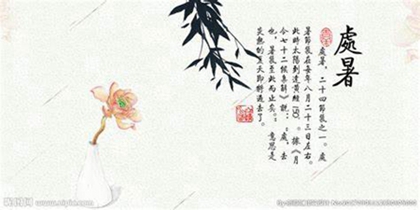 處暑
處暑，二十四節氣之一。處
暑節氣在每年八月二十三日左右。
此時太陽到達黃經150°。據《月
令七十二候集解》說：「處，去
也，暑氣至此而止矣。」意思是
炎熱的夏天即將過去了。